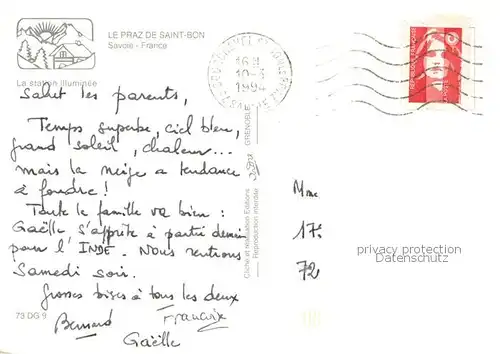 LE PRAZ DE SAINT-BON
Savoie - France
La station illuminée
16 H
10-3
1994
RÉPUBLIQUE FRANÇAISE
Salut les parents,
Temps superbe, ciel bleu,
grand soleil, chaleur...
mais la neige a tendance
à fondre !
Toute le famille va bien :
Gaëlle s'apprête à partir demain
pour l'INDE. Nous rentrons
Samedi soir.
Grosses bises à tous les deux
Bernard Françoise
Gaëlle
73 DG 9
GRENOBLE
Cliché et réalisation Editions
Reproduction interdite
Mme
17.
72
privacy protection
Datenschutz